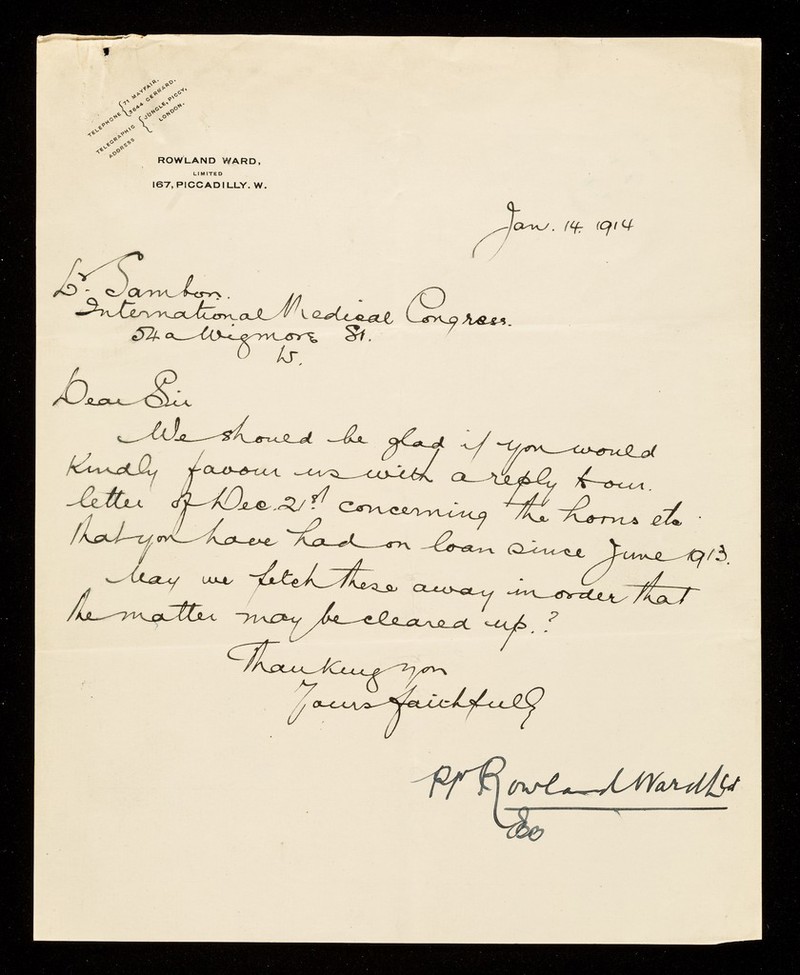 TELEPHONE { 71 MAYFAIR.
3644 GERRARD.
TELEGRAPHIC ADDRESS { JUNGLE, PICCY, LONDON.
ROWLAND WARD,
LIMITED
167, PICCADILLY. W.
Jan. 14. 1914
Dr. Sambon.
International Medical Congress.
54a Wigmore St.
W.
Dear Sir
We should be glad if you would
Kindly favour us with a reply to our
letter of Dec. 21st concerning the horns etc
that you have had on loan since June 1913.
May we fetch these away in order that
the matter may be cleared up.?
Thanking you
Yours faithfully
pp Rowland Ward Ltd